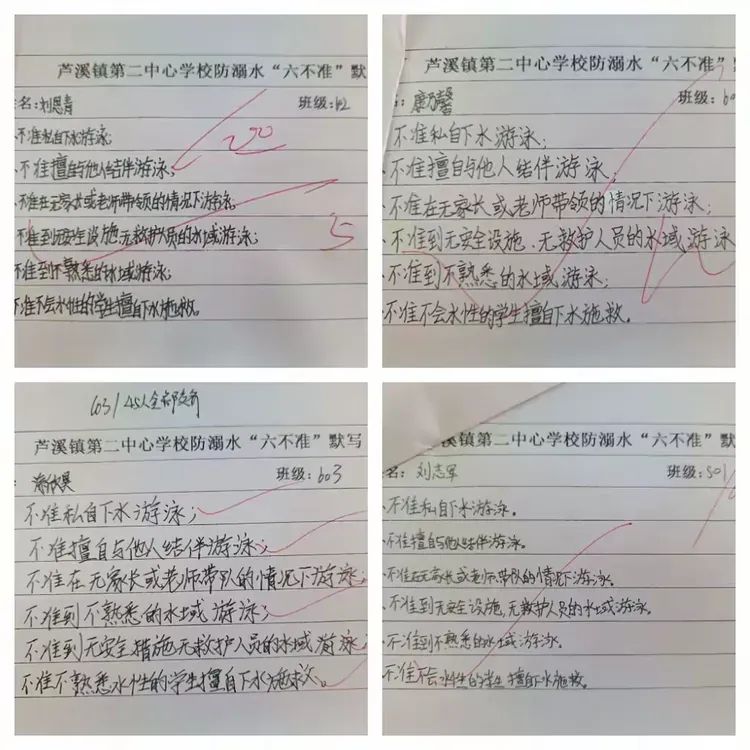 芦溪镇第二中心学校防溺水“六不准”默
名:刘思青 班级:
不准私自下水游泳;
不准擅自与他人结伴游泳;
不准在无家长或老师带领的情况下游泳
不准到无安全设施、无救护人员的水域游泳;
不准到不熟悉的水域游泳;
不准不会水性的学生擅自下水施救。
5
芦溪镇第二中心学校防溺水“六不准”默
班级:
不准私自下水游泳;
不准擅自与他人结伴游泳;
不准在无家长或老师带领的情况下游泳;
不准到无安全设施、无救护人员的水域游泳
不准到不熟悉的水域游泳;
不准不会水性的学生擅自下水施救。
603/45人全部交齐
芦溪镇第二中心学校防溺水“六不准”默写
班级:603
不准私自下水游泳;
不准擅自与他人结伴游泳;
不准在无家长或老师带队的情况下游泳;
不准到不熟悉的水域游泳;
不准到无安全措施无救护人员的水域游泳
不准不熟悉水性的学生擅自下水施救。
溪镇第二中心学校防溺水“六不准”默
名:刘志军 班级:501
不准私自下水游泳。
不准擅自与他人结伴游泳。
不准在无家长或老师带队的情况下游泳。
不准到无安全设施、无救护人员的水域游泳。
不准到不熟悉的水域游泳。
不准不会水性的学生擅自下水施救。